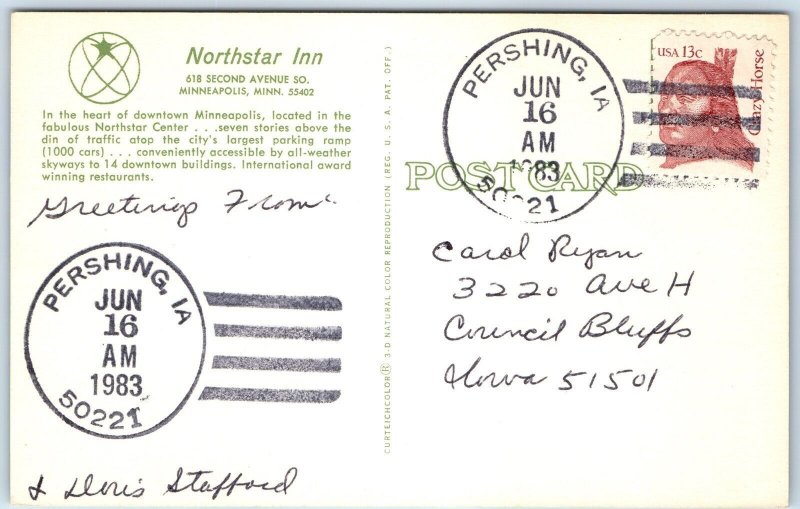 Northstar Inn
618 SECOND AVENUE SO.
MINNEAPOLIS, MINN. 55402
In the heart of downtown Minneapolis, located in the
fabulous Northstar Center . . .seven stories above the
din of traffic atop the city's largest parking ramp
(1000 cars) . . . conveniently accessible by all-weather
skyways to 14 downtown buildings. International award
winning restaurants.
Greetings From
PERSHING, IA
JUN
16
AM
1983
50221
& Doris Stafford
CURTEICHCOLOR® 3-D NATURAL COLOR REPRODUCTION (REG. U. S. A. PAT. OFF.)
POST CARD
PERSHING, IA
JUN
16
AM
1983
50221
USA 13c
Crazy Horse
Carol Ryan
3220 Ave H
Council Bluffs
Iowa 51501